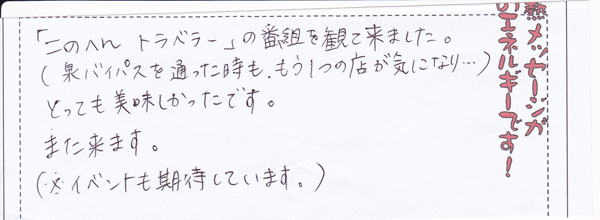 「このへん トラベラー」の番組を観て来ました。
(泉バイパスを通った時も、もう1つの店が気になり…)
とっても美味しかったです。
また来ます。
(※イベントも期待しています。)
熱メッセージが
のエネルギーです!